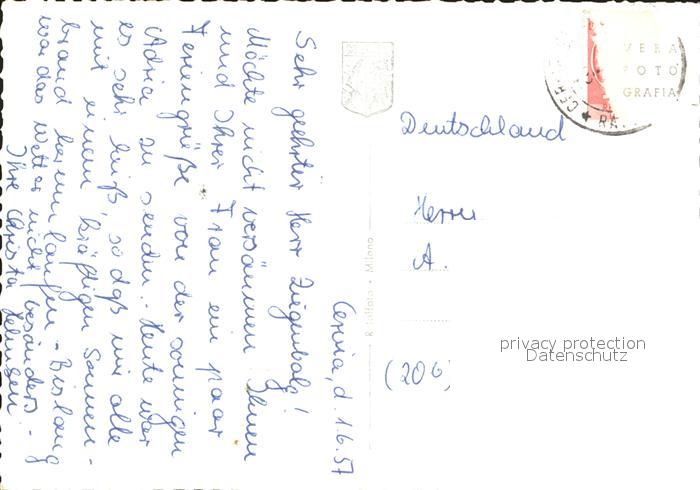 Cervia, d. 1.6.57
Sehr geehrter Herr Ziegenbalg!
Möchte nicht versäumen Ihnen
und Ihrer Frau ein paar
Feriengrüße von der sonnigen
Adria zu senden. - Heute war
es sehr heiß, sodaß wir alle
mit einem kräftigen Sonnen-
brand herumlaufen. - Bislang
war das Wetter nicht besonders. -
Ihre Christa
Deutschland
Herrn
A.
(206)
Milano
VERA
FOTO
GRAFIA
privacy protection
Datenschutz